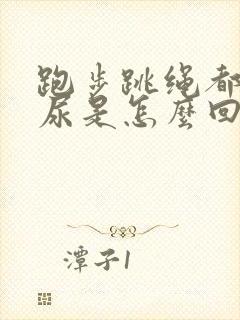 跑步跳绳都
尿是怎麼回
潭子1